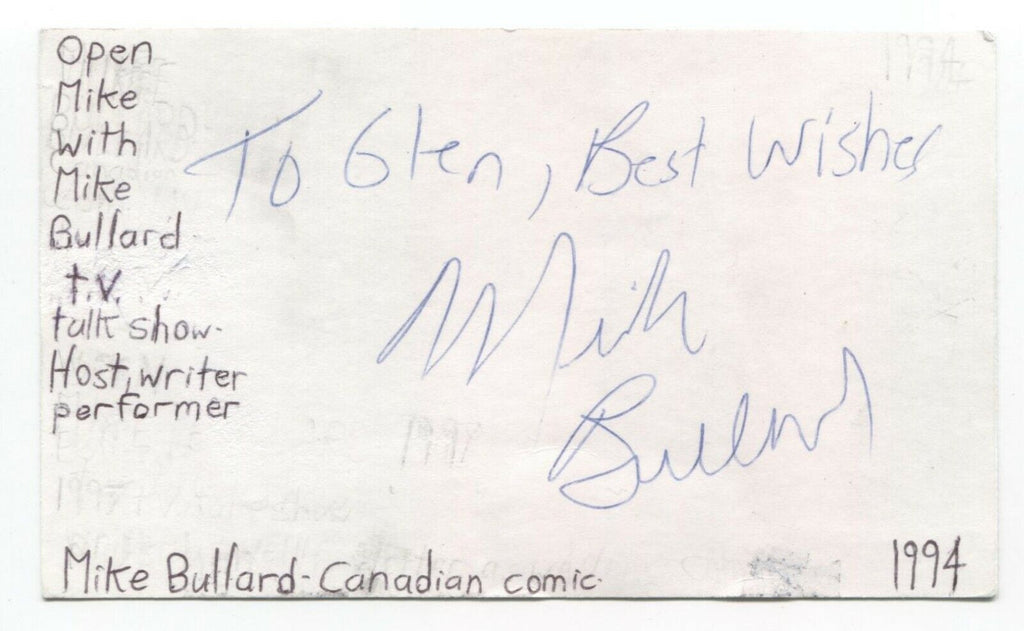 Open
Mike
With
Mike
Bullard
t.v.
talk show-
Host, writer
performer
To Glen, Best Wishes
Mike
Bullard
Mike Bullard-Canadian comic.
1994